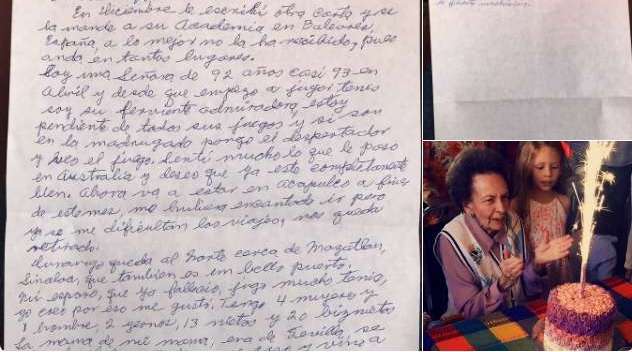 En Diciembre le escribí otra carta y se
la mandé a su Academia en Baleares,
España, a lo mejor no la ha recibido, pues
anda en tantos lugares.
Soy una Señora de 92 años casi 93 en
Abril y desde que empezó a jugar tenis
soy su ferviente admiradora, estoy
pendiente de todos sus juegos y si son
en la madrugada pongo el despertador
y veo el juego. Sentí mucho lo que le pasó
en Australia y deseo que ya esté completamente
bien. Ahora va a estar en Acapulco a fines
de este mes, me hubiera encantado ir pero
ya se me dificultan los viajes, nos queda
retirado.
queda al Norte cerca de Mazatlan,
Sinaloa, que también es un bello puerto.
Mi esposo, que ya falleció, jugó mucho tenis,
yo creo por eso me gusta. Tengo 4 mujeres y
1 hombre, 2 yernos, 13 nietos y 20 bisnietos
La mamá de mi mamá, era de Sevilla, se
y vino a